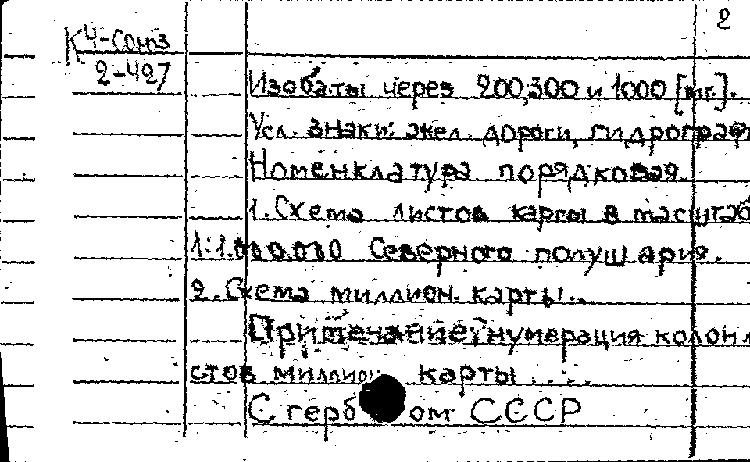 2
К4-Союз
2-427
Изобаты через 200,500 и 1000
Усл. знаки: жел. дороги, гидрограф
Номенклатура порядковая.
1. Схема листов карты в масштаб
1:1.000.000 Северного полушария.
2. Схема миллион. карты...
Примечание: нумерация колон л
стов миллион. карты . . . .
С гербом СССР